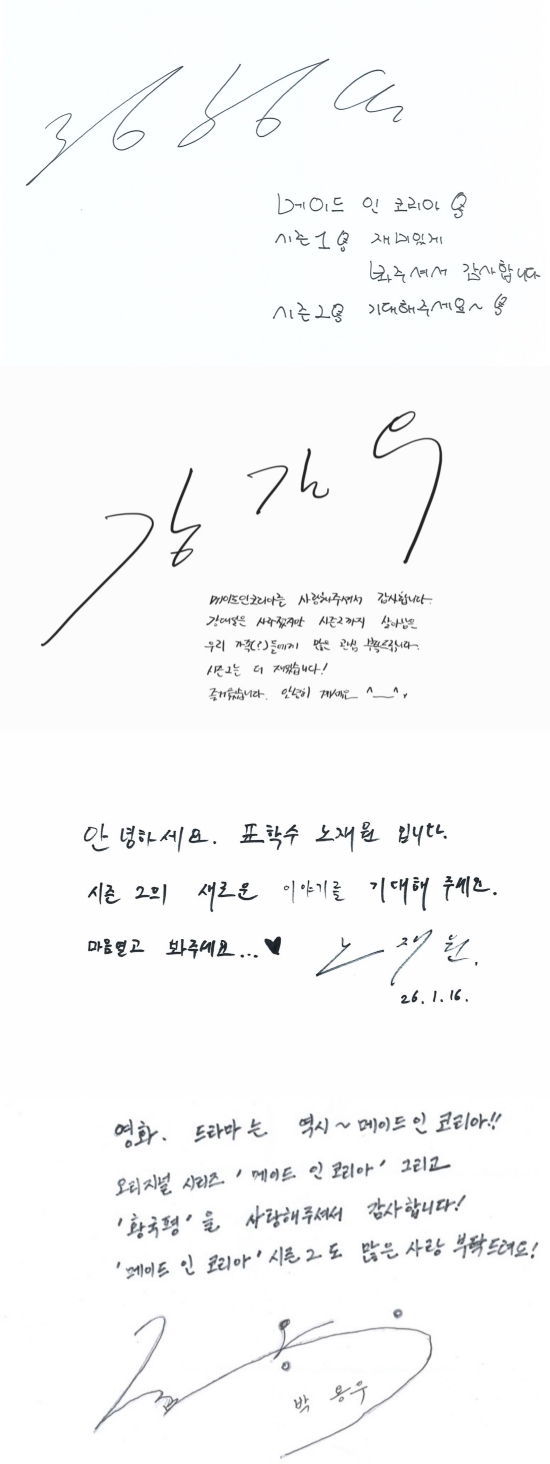 메이드 인 코리아
시즌1 재미있게
봐주셔서 감사합니다
시즌2 기대해주세요~
메이드인코리아를 사랑해주셔서 감사합니다.
강대일은 사라졌지만 시즌2까지 살아남은
우리 가족(?)들에게 많은 관심 부탁드립니다.
시즌2는 더 재밌습니다!
즐거웠습니다. 안녕히 계세요 ^__^
안녕하세요. 표학수 노재원 입니다.
시즌 2의 새로운 이야기를 기대해 주세요.
마음열고 봐주세요...♥
노재원.
26.1.16.
영화. 드라마는 역시~메이드인 코리아!!
오리지널 시리즈 '메이드 인 코리아' 그리고
'황국평'을 사랑해주셔서 감사합니다!
'메이드 인 코리아' 시즌2도 많은 사랑 부탁드려요!
박 용우